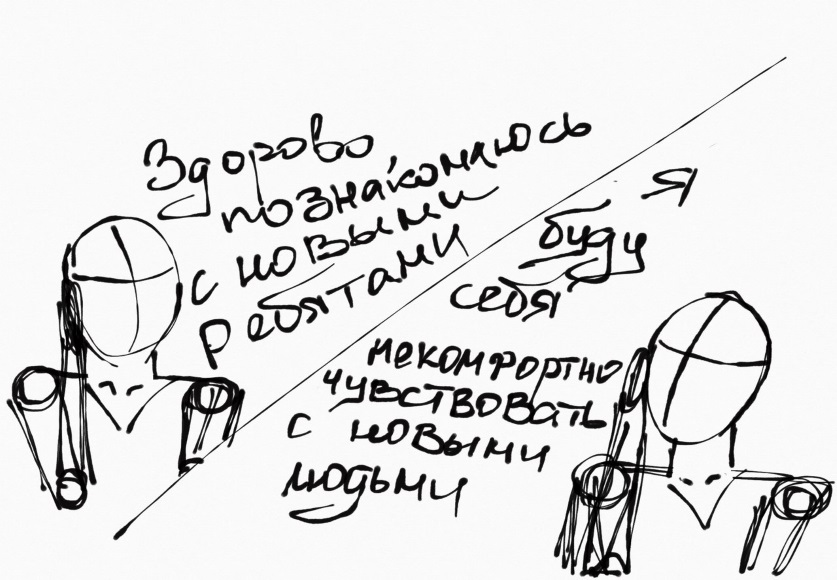 Здорово
познакомлюсь
с новыми
ребятами
я
буду
себя
некомфортно
чувствовать
с новыми
людьми